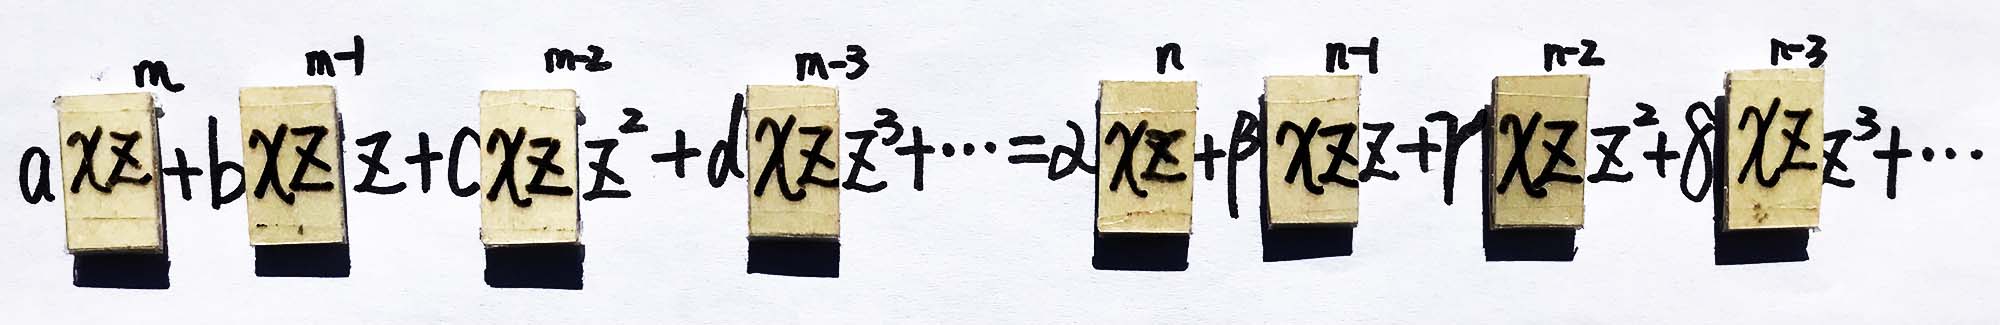 a xz^m + b xz^{m-1} z + c xz^{m-2} z² + d xz^{m-3} z³ + ⋯ = α xz^n + β xz^{n-1} z + γ xz^{n-2} z² + δ xz^{n-3} z³ + ⋯